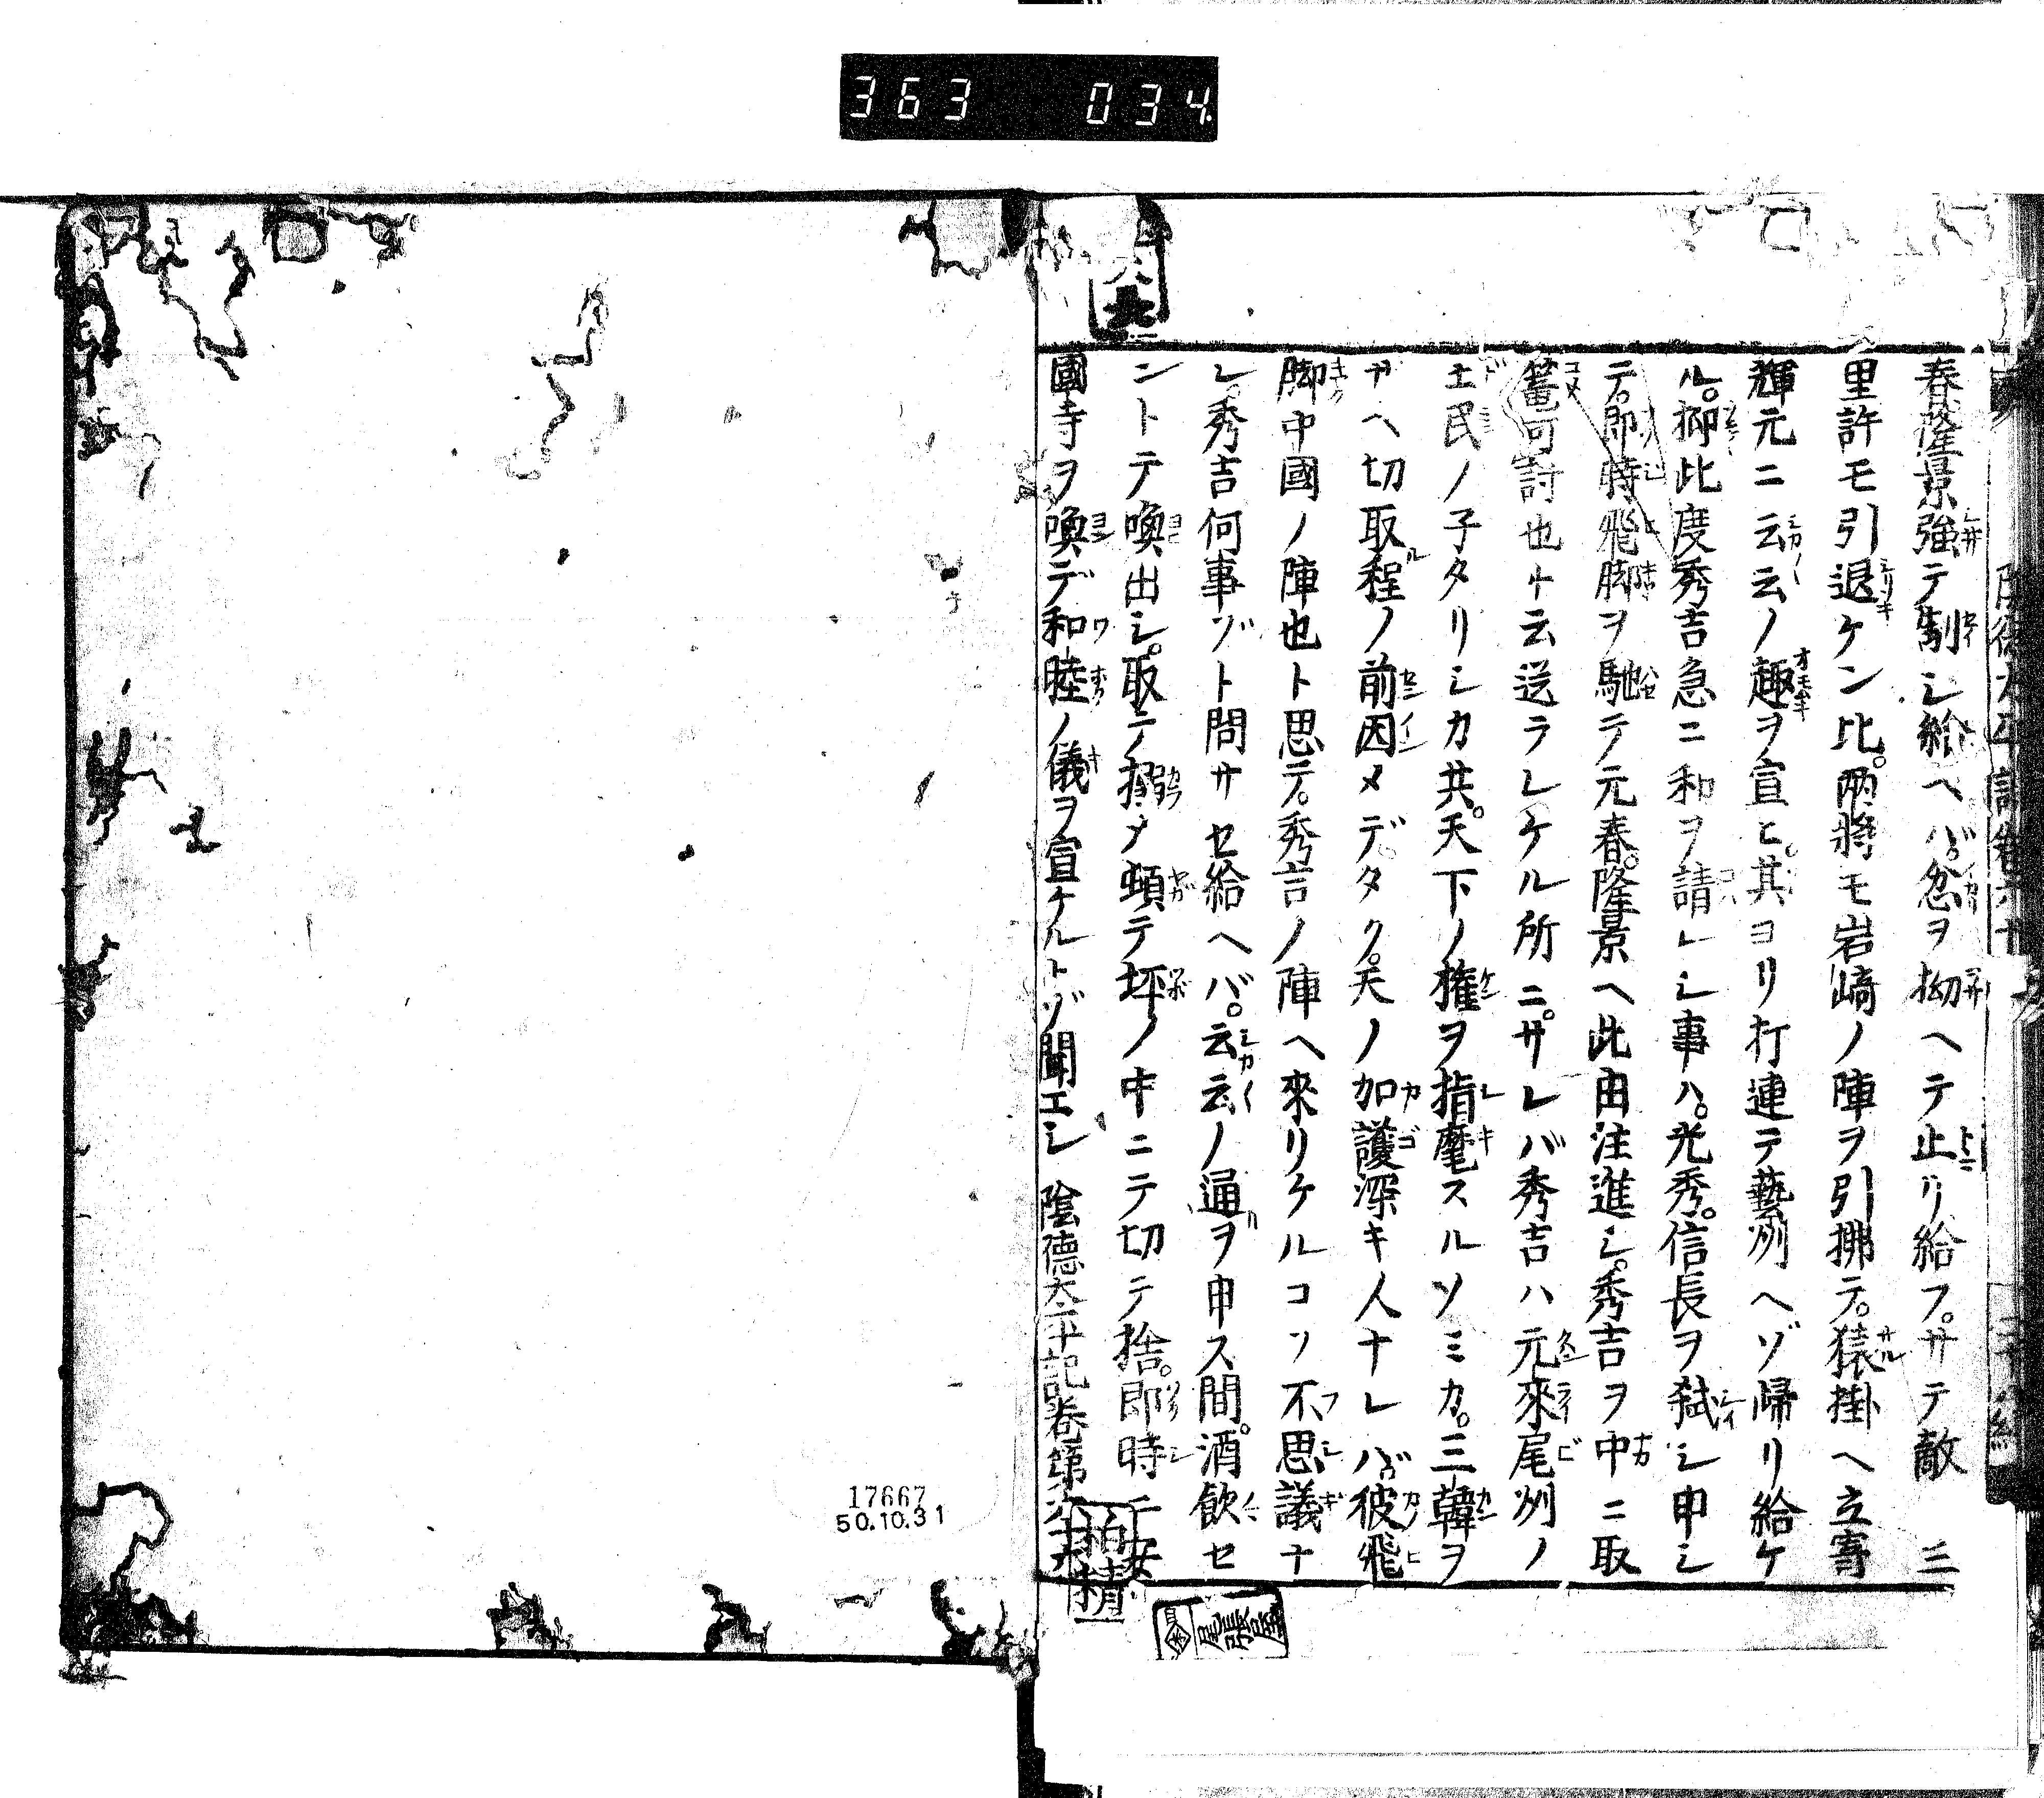 363 034
春隆景強テ制シ給ヘバ。忿ヲ拗ヘテ止リ給フ。サテ敵三
里許モ引退ケン比。兩將モ岩﨑ノ陣ヲ引拂テ。猿掛ヘ立寄
輝元ニ云云ノ趣ヲ宣ヒ。其ヨリ打連テ藝州ヘゾ帰リ給ケ
ル。抑此度秀吉急ニ和ヲ請レシ事ハ。光秀。信長ヲ弑シ申シ
テ。即時飛脚ヲ馳テ元春。隆景ヘ此由注進シ。秀吉ヲ中ニ取
篭可討也ト云送ラレケル所ニ。サレバ秀吉ハ元來尾州ノ
土民ノ子タリシカ共。天下ノ権ヲ指麾スルソミカ。三韓ヲ
サヘ切取程ノ前因メデタク。天ノ加護深キ人ナレバ。彼飛
脚中國ノ陣也ト思テ。秀吉ノ陣ヘ來リケルコソ不思議ナ
レ。秀吉何事ゾト問サセ給ヘバ。云云ノ通ヲ申ス間。酒飲セ
ントテ喚出シ。取テ搦メ頓テ坪ノ中ニテ切テ捨。即時ニ安
國寺ヲ喚デ和睦ノ儀ヲ宣ケルトゾ聞エシ
陰德太平記卷第六十六
17667
50.10.31
尾張屋